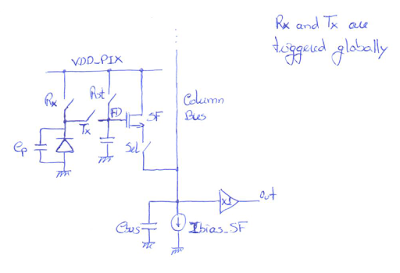 Rx and Tx are
triggered globally
VDD_PIX
Rx
Rst
FD
SF
Tx
Column
Bus
Cp
Sel
x1
out
Cbus
Ibias_SF